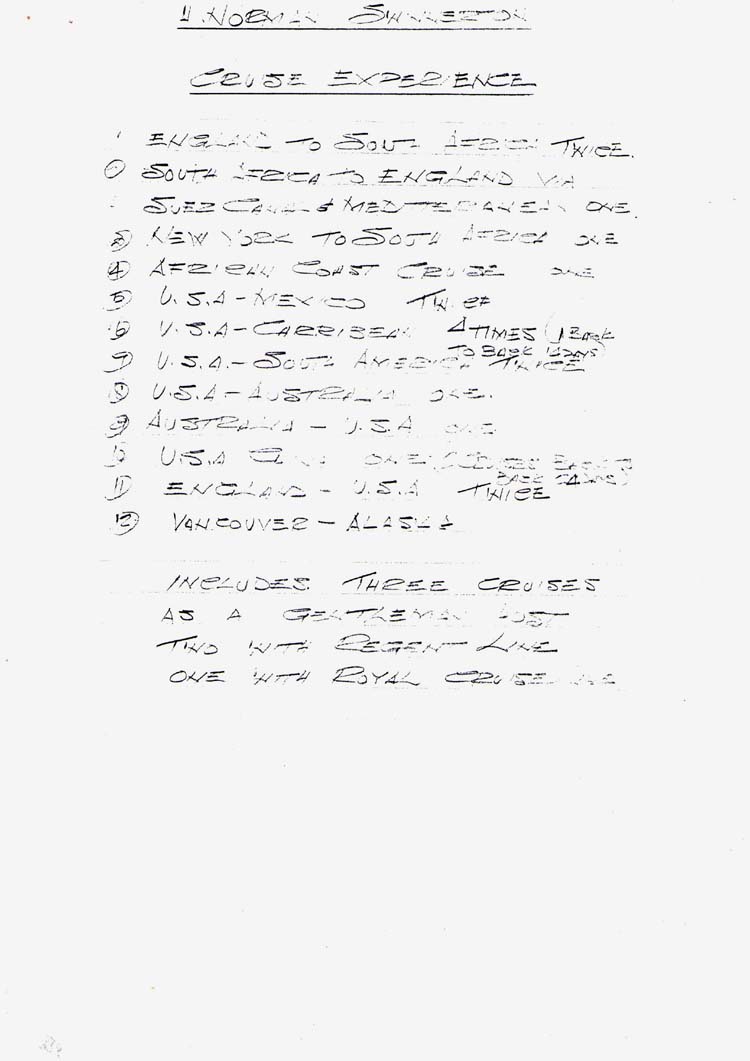 NORMAN
CRUISE EXPERIENCE
ENGLAND TO SOUTH AFRICA TWICE.
SOUTH AFRICA TO ENGLAND VIA
SUEZ CANAL & MEDITERANEAN ONE.
③ NEW YORK TO SOUTH AFRICA ONE
④ AFRICAN COAST CRUISE ONE
⑤ U.S.A - MEXICO TWICE
⑥ U.S.A - CARRIBEAN 4 TIMES (1 BACK
TO BACK DAYS)
⑦ U.S.A. - SOUTH AMERICA TWICE
⑧ U.S.A - AUSTRALIA ONE.
⑨ AUSTRALIA - U.S.A ONE
U.S.A ONE BACK TO
BACK DAYS)
⑪ ENGLAND - U.S.A TWICE
⑫ VANCOUVER - ALASKA
INCLUDES THREE CRUISES
AS A GENTLEMAN HOST
TWO WITH REGENT LINE
ONE WITH ROYAL CRUISE LINE